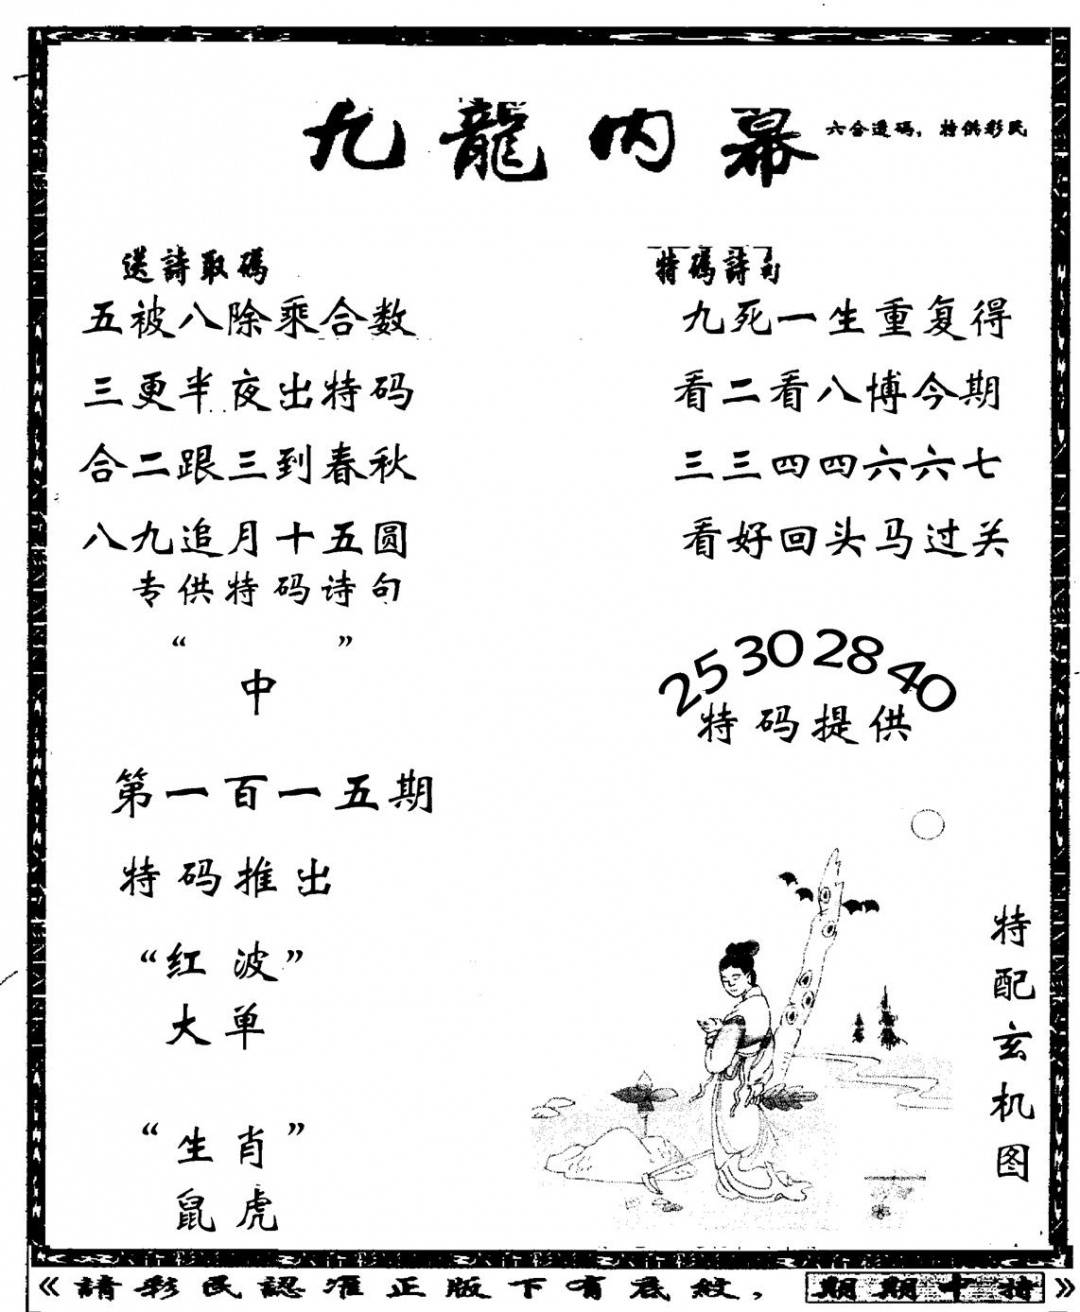 九龍内幕
六合透码，特供彩民
送詩取碼
五被八除乘合数
三更半夜出特码
合二跟三到春秋
八九追月十五圆
专供特码诗句
“ ”
中
第一百一五期
特码推出
“红波”
大单
“生肖”
鼠虎
特碼詩句
九死一生重复得
看二看八博今期
三三四四六六七
看好回头马过关
25 30 28 40
特码提供
特配玄机图
《請彩民認准正版下有底紋， 期期中特》